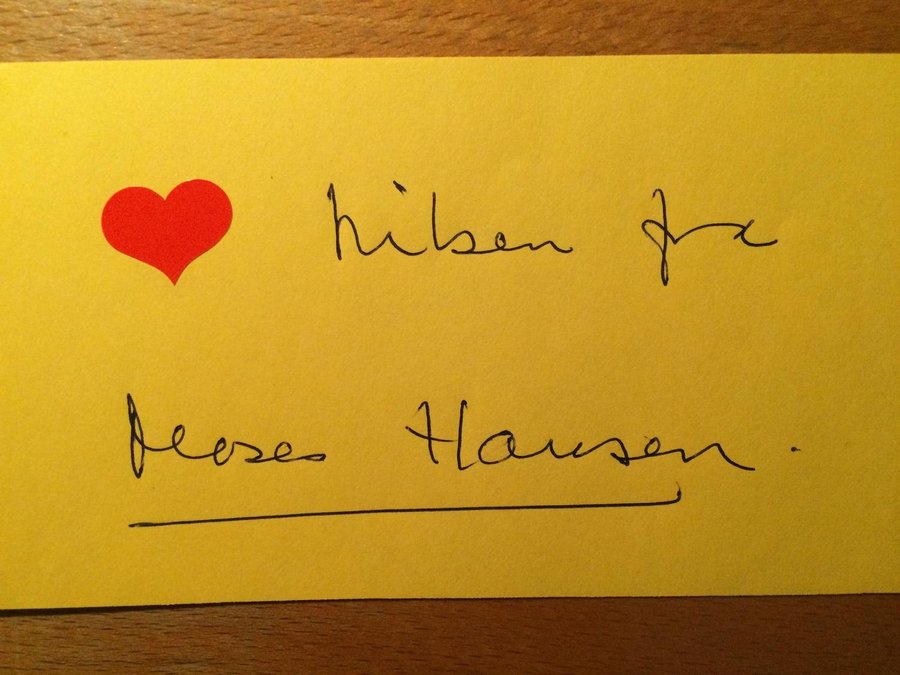 hilsen fra
Moses Hansen.